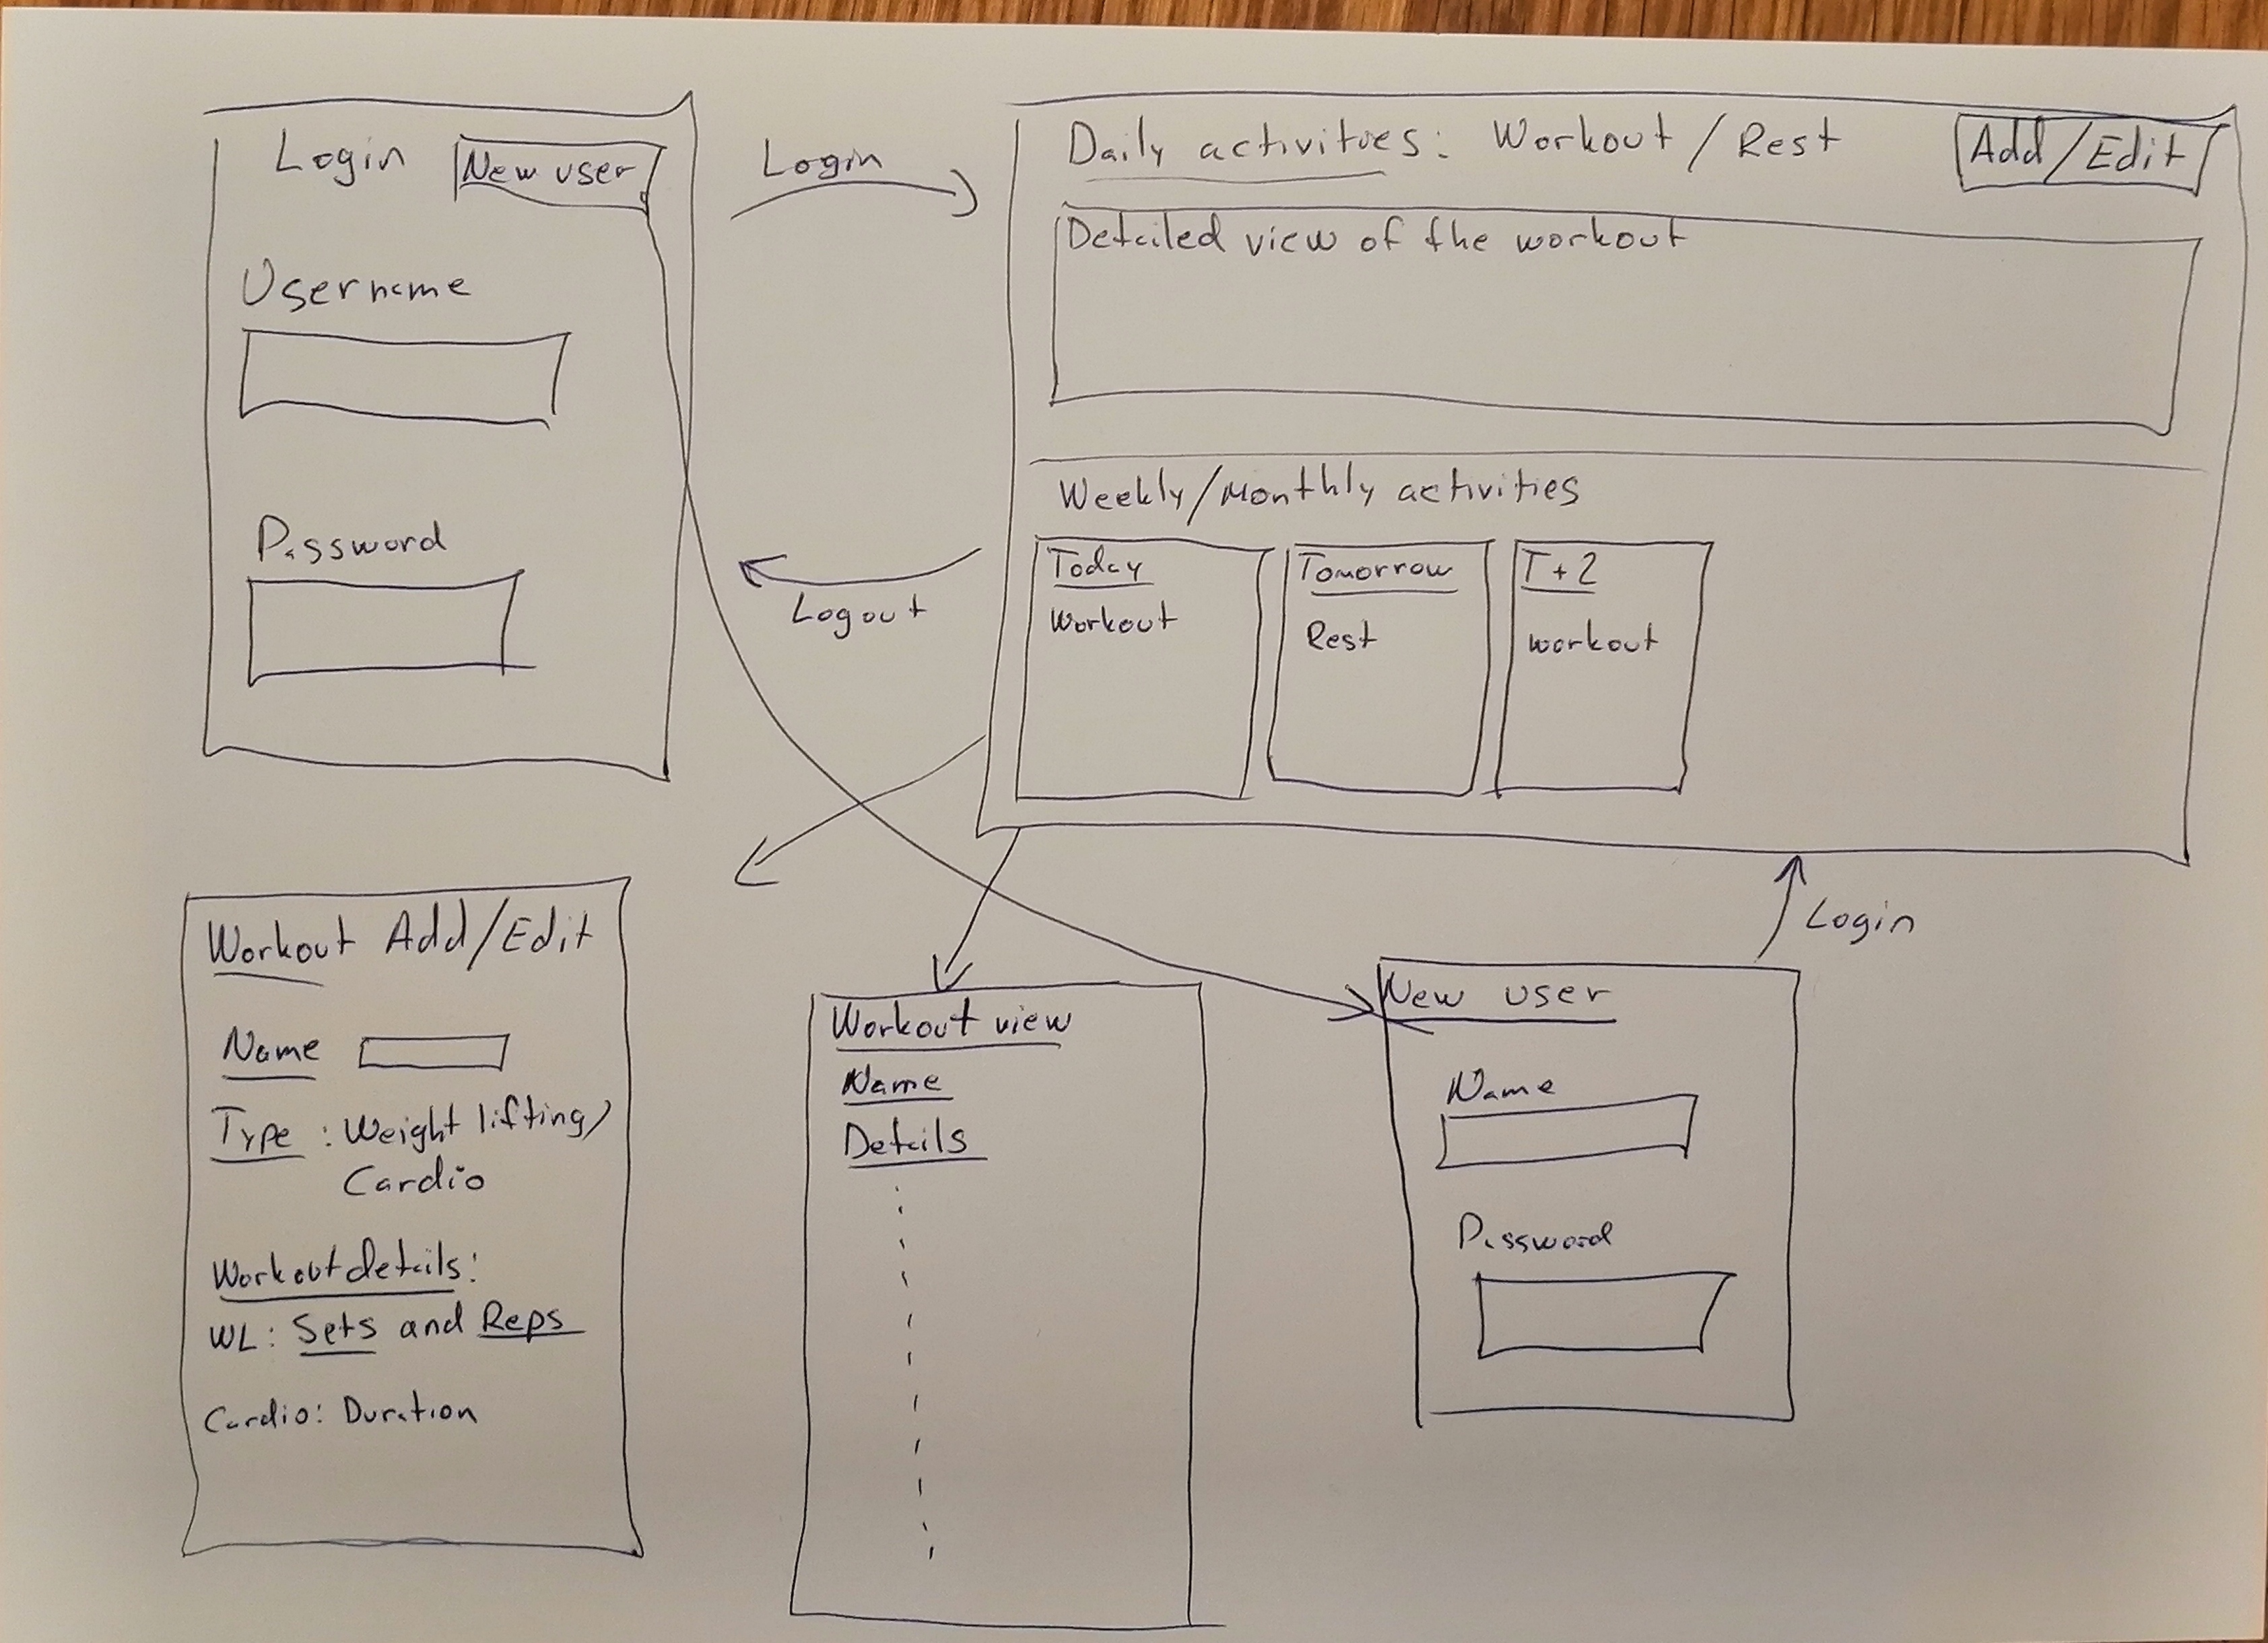 Login
New user
Username
Password
Login
Logout
Daily activities: Workout / Rest
Add/Edit
Detailed view of the workout
Weekly/Monthly activities
Today
Workout
Tomorrow
Rest
T + 2
workout
Workout Add/Edit
Name
Type : Weight lifting/
Cardio
Workout details:
WL: Sets and Reps
Cardio: Duration
Workout view
Name
Details
New user
Name
Password
Login